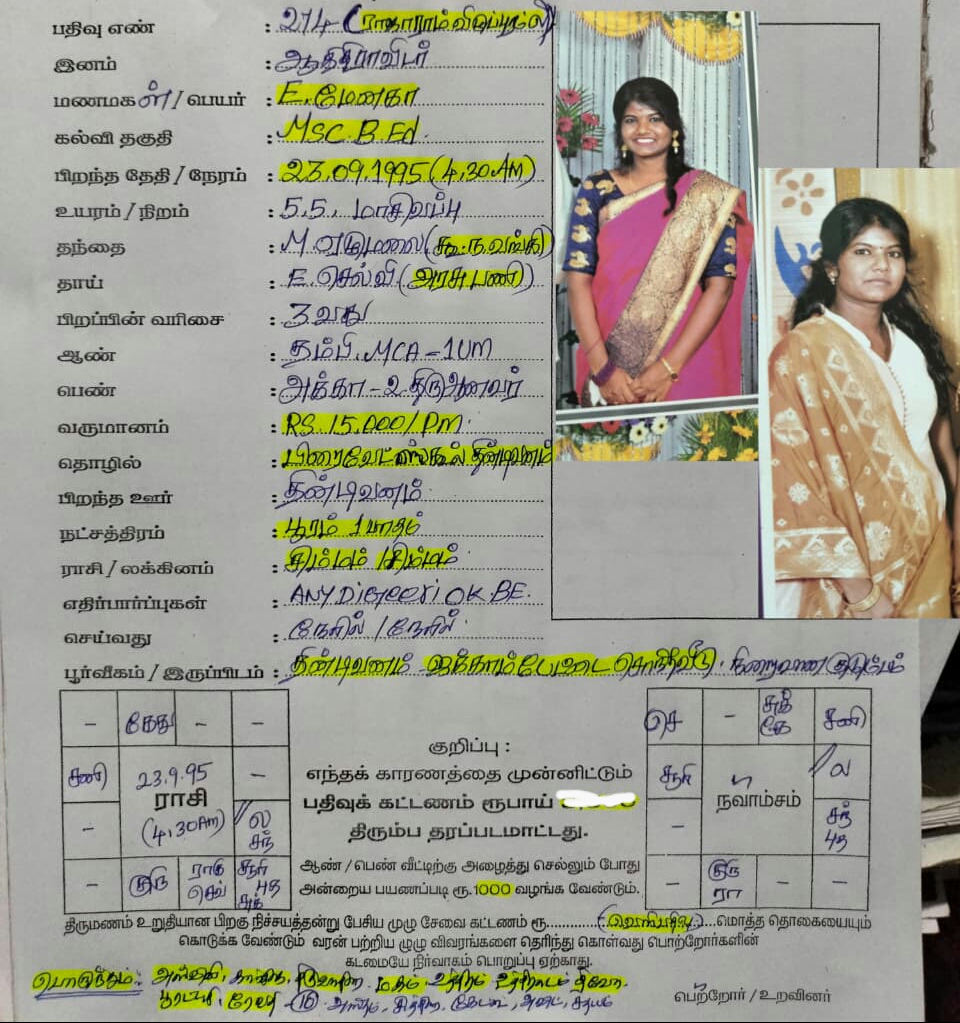 பதிவு எண் : 274
இனம் : ஆதிதிராவிடர்
மணமகள் / பெயர் : E. மேனகா
கல்வி தகுதி : MSC. B.Ed.
பிறந்த தேதி / நேரம் : 23.09.1995 (4.30Am)
உயரம் / நிறம் : 5.5. மாசிவப்பு
தந்தை : M. ஏழுமலை (கூ.ந.வங்கி)
தாய் : E. செல்வி (அரசு பணி)
பிறப்பின் வரிசை : 3 வது
ஆண் : தம்பி. MCA - 1
பெண் : அக்கா - 2.
வருமானம் : RS 15.000/Pm.
தொழில் : பிரைவேட் ஸ்கூல் திண்டிவனம்
பிறந்த ஊர் : திண்டிவனம்
நட்சத்திரம் : பூரம் 1 பாதம்
ராசி / லக்கினம் : சிம்மம் / சிம்மம்
எதிர்பார்ப்புகள் : ANY OK BE.
செய்வது : நேரில் / நேரில்
பூர்வீகம் / இருப்பிடம் : திண்டிவனம் சொந்தவீடு.
– கேது – –
சனி 23.9.95 –
ராசி
– (4.30Am) ல சந்
– குரு ராகு செவ் சூரி புத சுக்
குறிப்பு :
எந்தக் காரணத்தை முன்னிட்டும்
பதிவுக் கட்டணம் ரூபாய்
திரும்ப தரப்படமாட்டது.
ஆண் / பெண் வீட்டிற்கு அழைத்து செல்லும் போது
அன்றைய பயணப்படி ரூ.1000 வழங்க வேண்டும்.
செ – சுக் கே சனி
சூரி ல
நவாம்சம்
– சந் புத
– குரு ரா – –
திருமணம் உறுதியான பிறகு நிச்சயத்தன்று பேசிய முழு சேவை கட்டணம் ரூ. மொத்த தொகையையும்
கொடுக்க வேண்டும் வரன் பற்றிய முழு விவரங்களை தெரிந்து கொள்வது பெற்றோர்களின்
கடமையே நிர்வாகம் பொறுப்பு ஏற்காது.
பொருந்தும்:
பெற்றோர் / உறவினர்